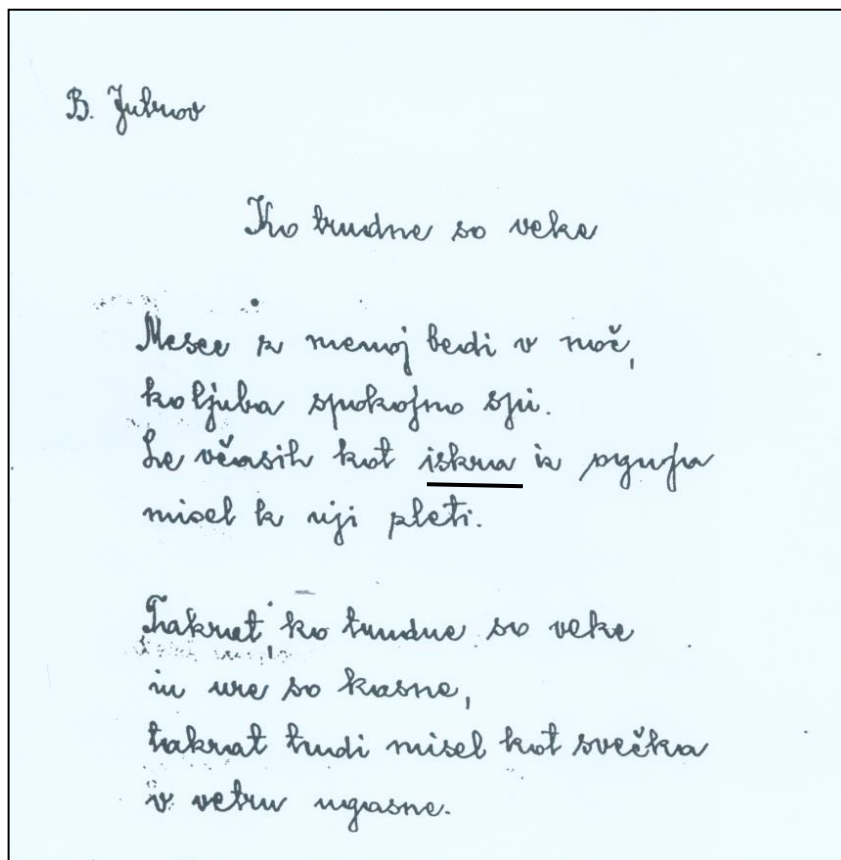 B. Jutrov
Ko trudne so veke
Mesec z menoj bedi v noč,
ko ljuba spokojno spi.
Le včasih kot iskra iz ognja
misel k nji pleti.
Takrat, ko trudne so veke
in ure so kasne,
takrat tudi misel kot svečka
v vetru ugasne.